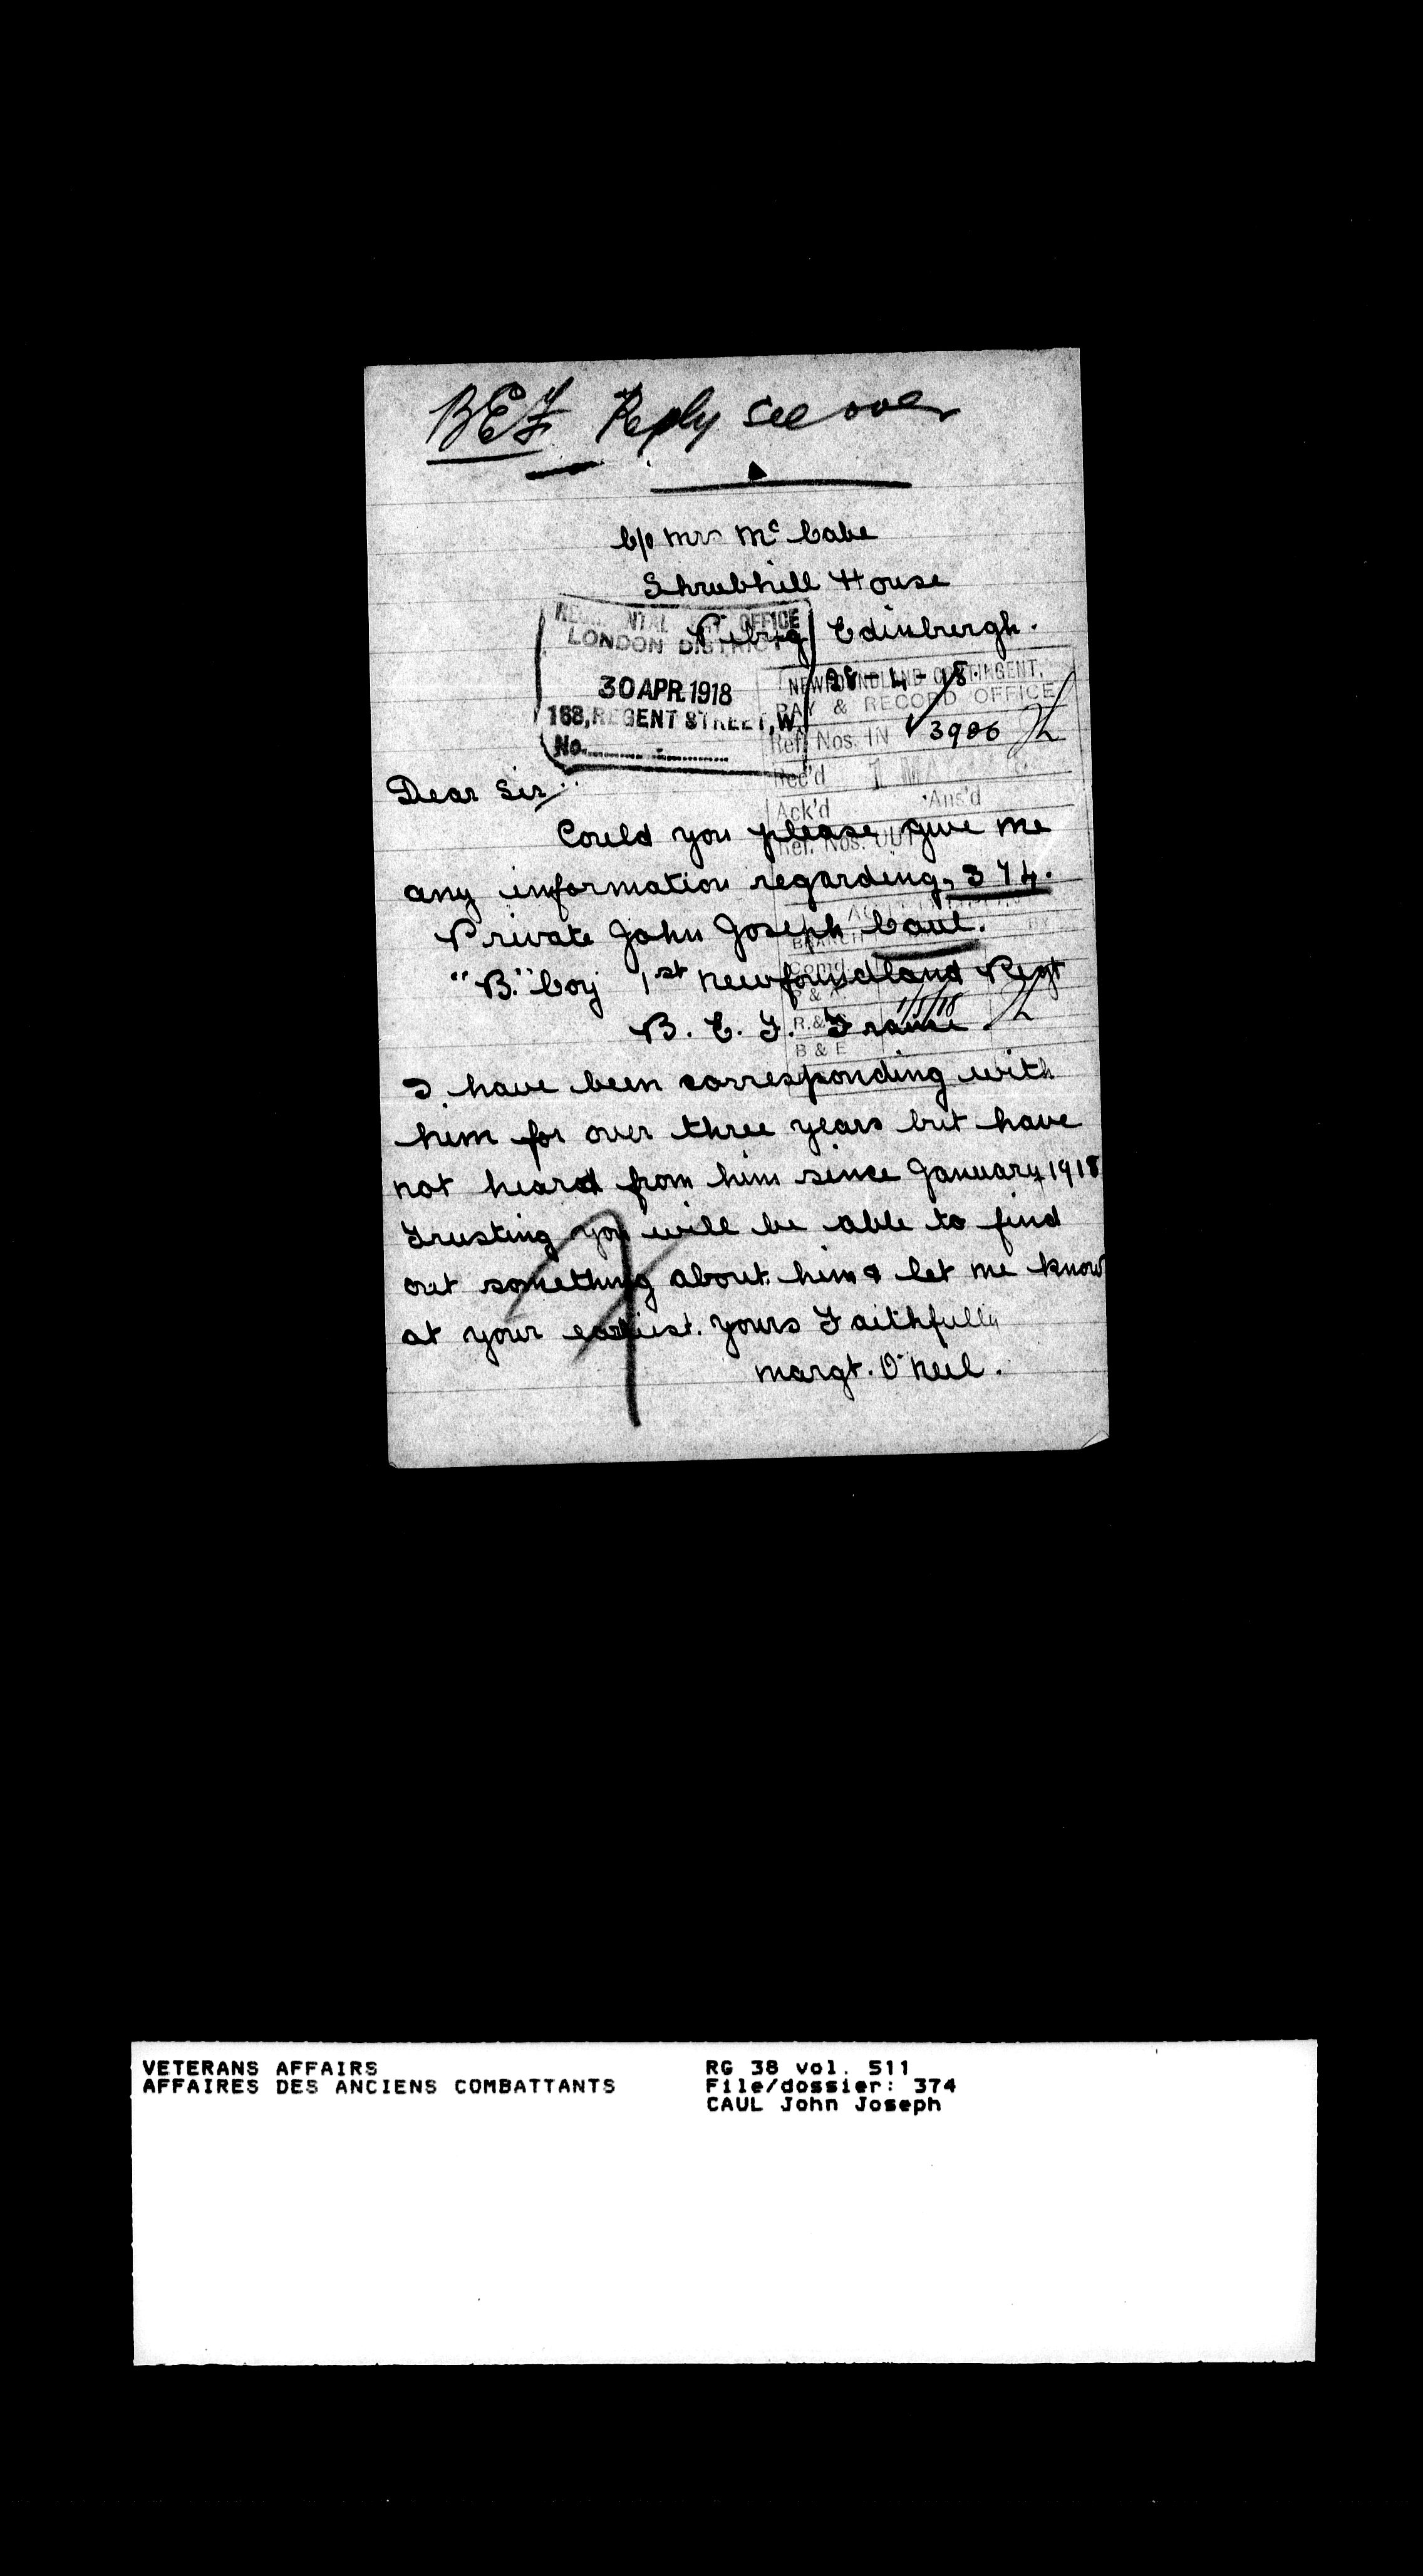 BEF Reply see over
C/o Mrs McCabe
Shrubhill House
Pilrig Edinburgh.
OFFICE
LONDON DISTRICT
30 APR. 1918
168, REGENT STREET, W.
No.
28-4-18.
NEWFOUNDLAND CONTINGENT,
PAY & RECORD OFFICE
Ref. Nos. IN 3986
Rec'd 1 MAY
Ack'd Ans'd
Ref. Nos. OUT
Dear Sir/
Could you please give me
any information regarding, 374.
Private John Joseph Caul.
"B." Coy 1st Newfoundland Regt
B. E. F. France.
BRANCH BY
R. & 1/5/18
B & E
I have been corresponding with
him for over three years but have
not heard from him since January 1918
Trusting you will be able to find
out something about him & let me know
at your earliest. Yours Faithfully
Margt. O'Neil.
VETERANS AFFAIRS
AFFAIRES DES ANCIENS COMBATTANTS
RG 38 vol. 511
File/dossier: 374
CAUL John Joseph